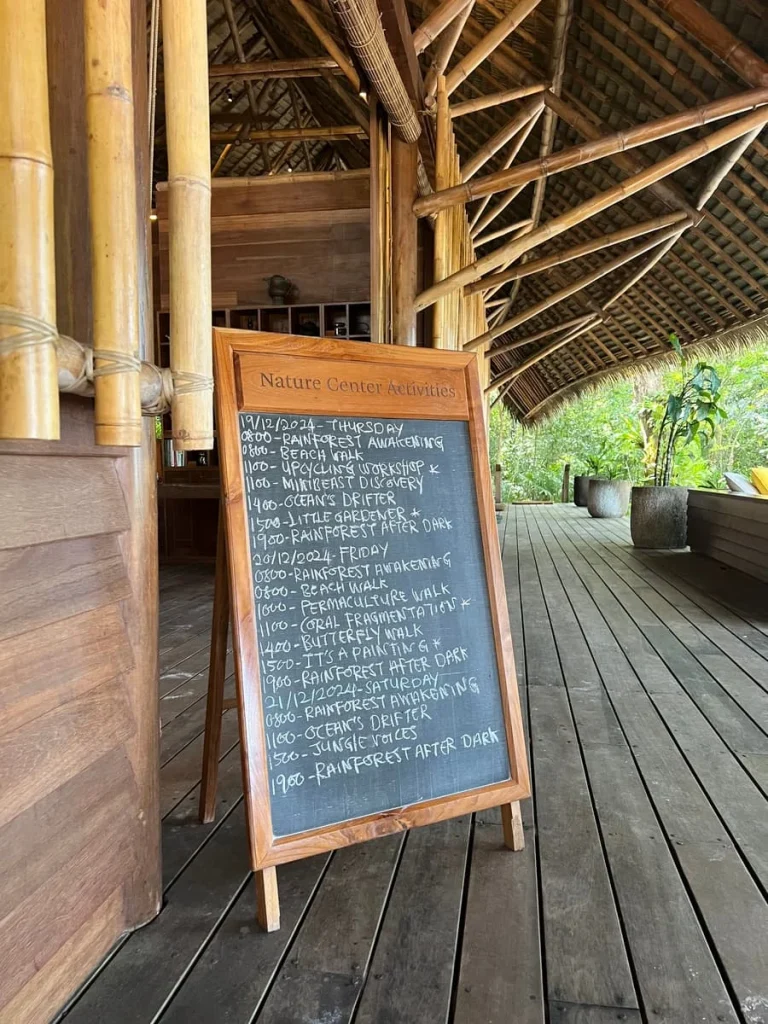 Nature Center Activities
19/12/2024 - THURSDAY
0800 - RAINFOREST AWAKENING
0800 - BEACH WALK
1100 - UPCYCLING WORKSHOP *
1100 - MINIBEAST DISCOVERY
1400 - OCEAN'S DRIFTER
1500 - LITTLE GARDENER *
1900 - RAINFOREST AFTER DARK
20/12/2024 - FRIDAY
0800 - RAINFOREST AWAKENING
0800 - BEACH WALK
1000 - PERMACULTURE WALK
1100 - CORAL FRAGMENTATION *
1400 - BUTTERFLY WALK
1500 - IT'S A PAINTING *
1900 - RAINFOREST AFTER DARK
21/12/2024 - SATURDAY
0800 - RAINFOREST AWAKENING
1100 - OCEAN'S DRIFTER
1500 - JUNGLE VOICES
1900 - RAINFOREST AFTER DARK